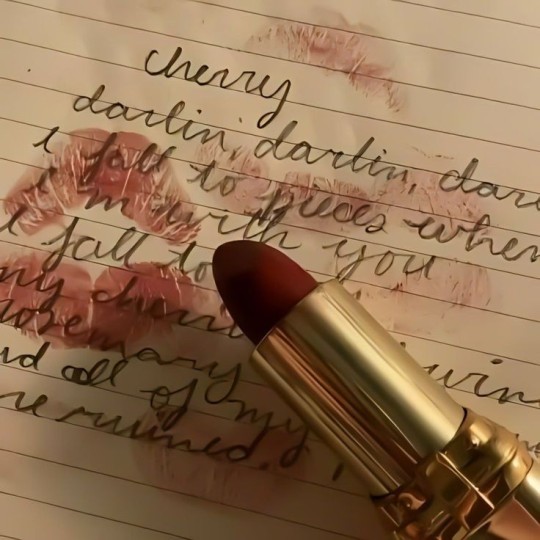 cherry
darlin, darlin, dar
i fall to pieces when
i'm with you
i fall to
my win
rosemary
all of my
ruined.